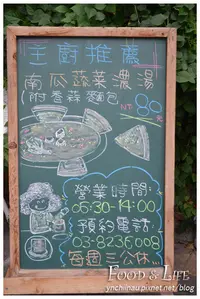 主廚推薦
南瓜蔬菜濃湯
(附香蒜麵包) NT:80元
營業時間:
06:30-14:00
預約電話
03-8236008
每週三公休...
FOOD & LIFE
ynchinau.pixnet.net/blog